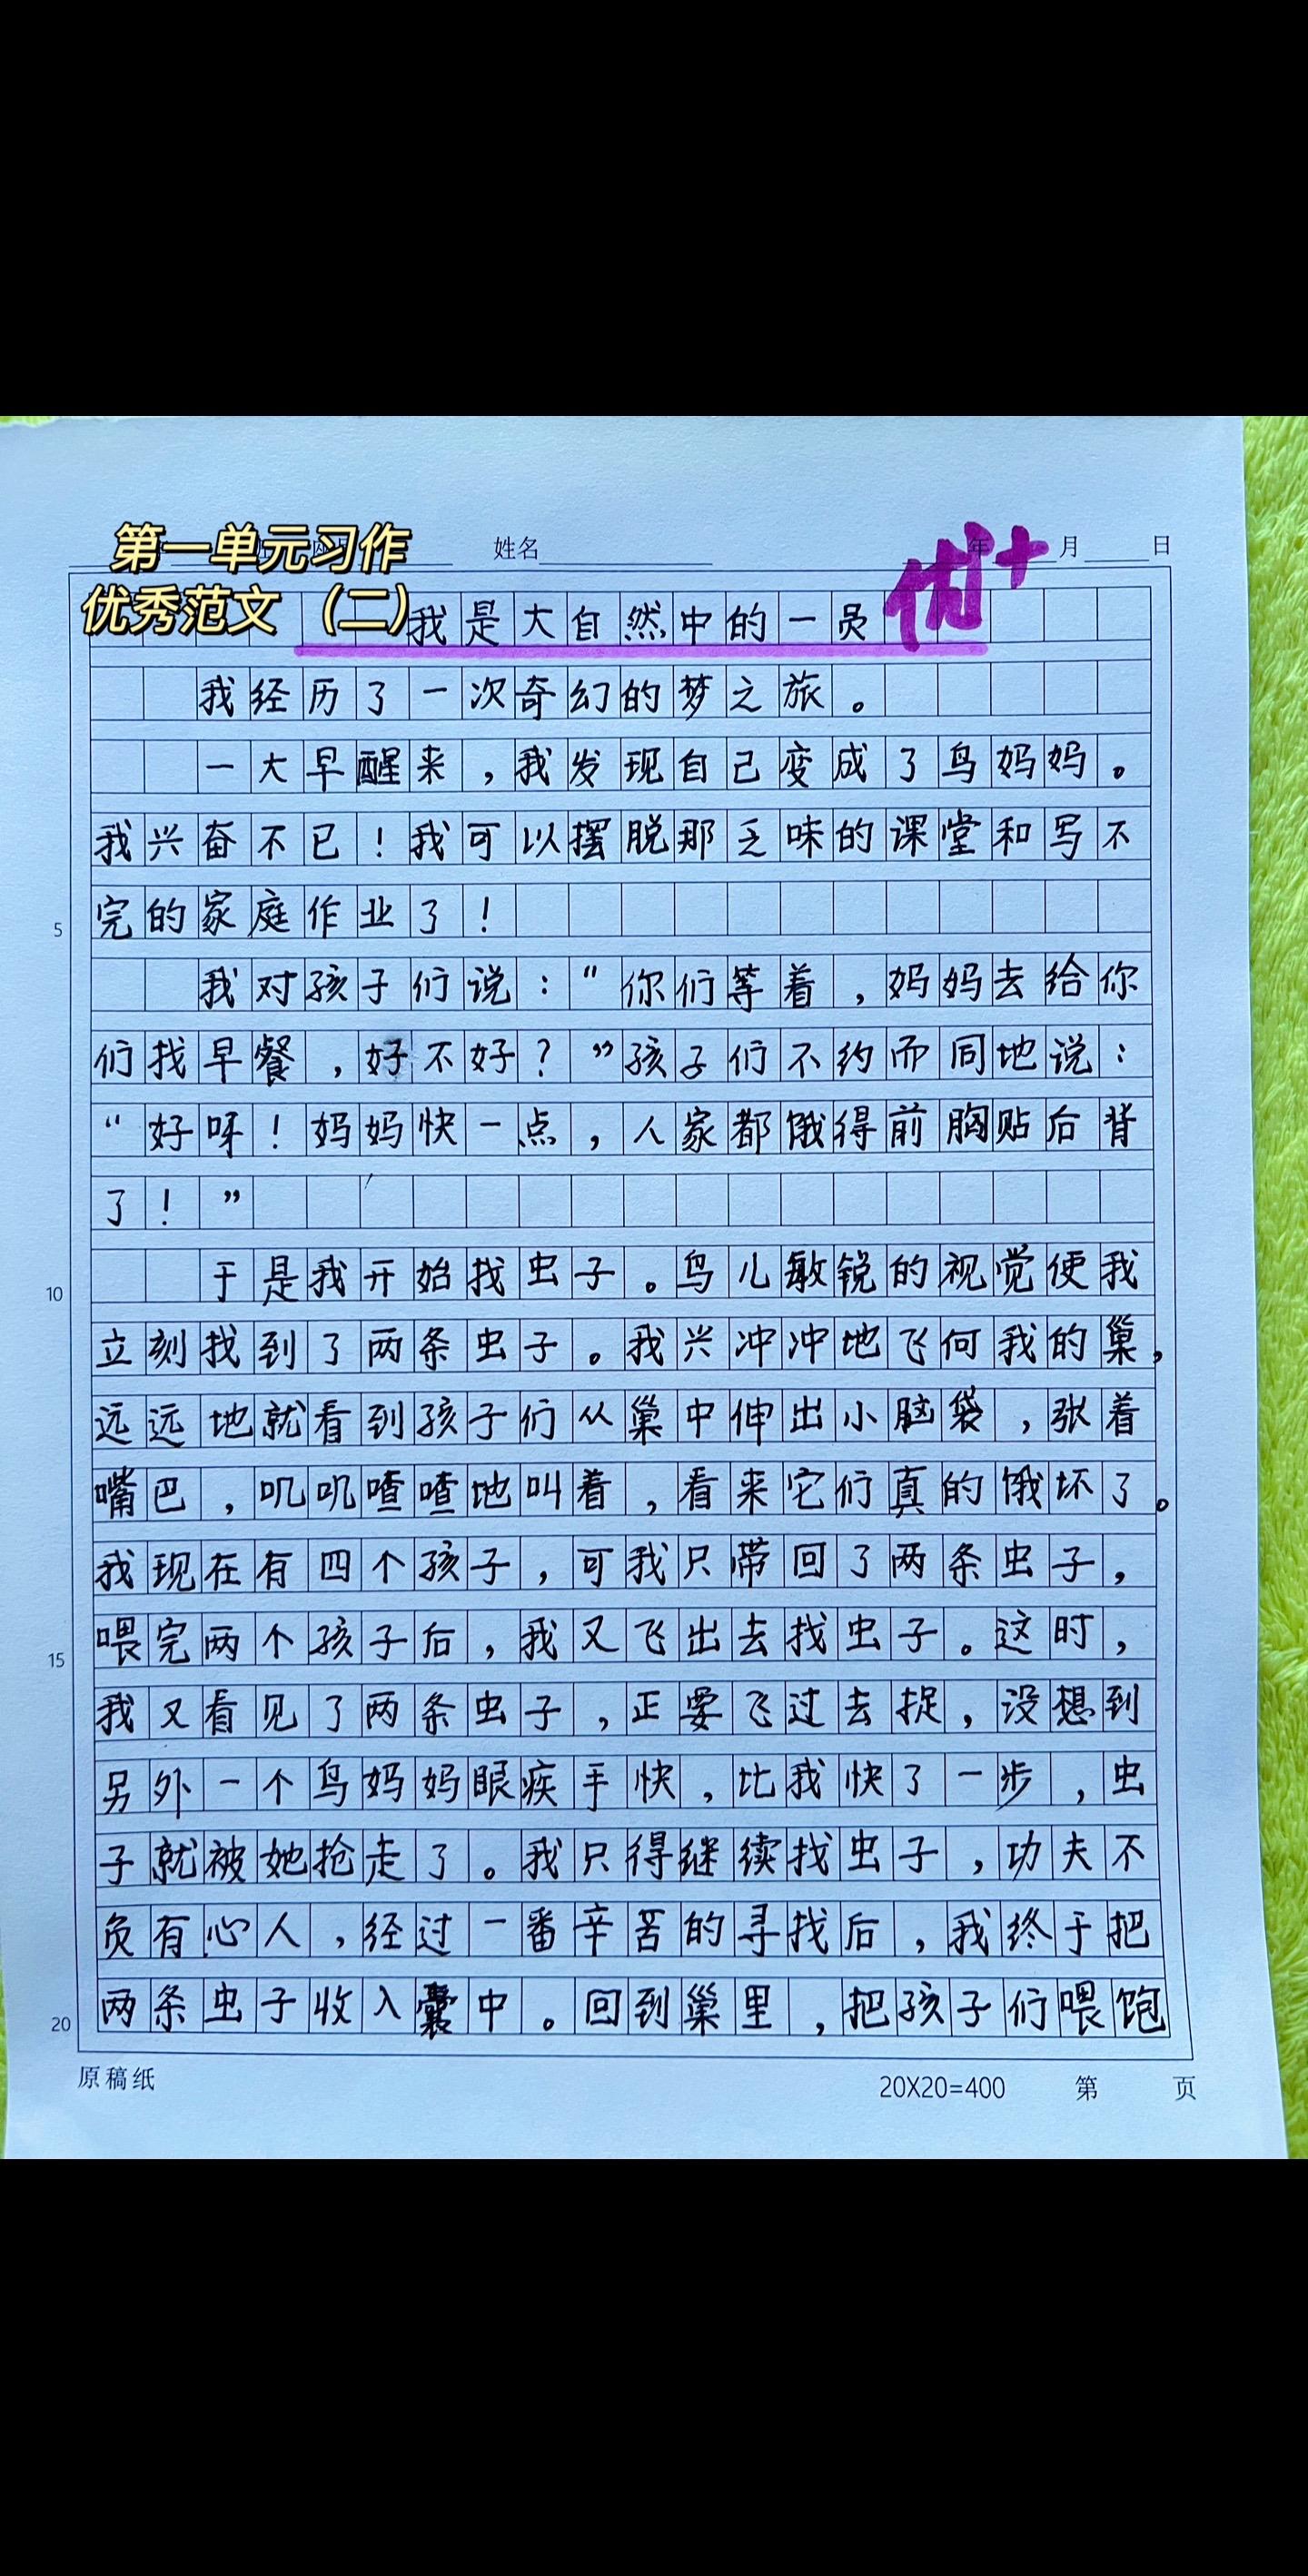 第一单元习作
姓名 年 月 日
优秀范文（二）
优+
我是大自然中的一员
我经历了一次奇幻的梦之旅。
一大早醒来，我发现自己变成了鸟妈妈。
我兴奋不已！我可以摆脱那乏味的课堂和写不
5
完的家庭作业了！
我对孩子们说：“你们等着，妈妈去给你
们找早餐，好不好？”孩子们不约而同地说：
“好呀！妈妈快一点，人家都饿得前胸贴后背
了！”
10
于是我开始找虫子。鸟儿敏锐的视觉使我
立刻找到了两条虫子。我兴冲冲地飞何我的巢，
远远地就看到孩子们从巢中伸出小脑袋，张着
嘴巴，叽叽喳喳地叫着，看来它们真的饿坏了。
我现在有四个孩子，可我只带回了两条虫子，
15
喂完两个孩子后，我又飞出去找虫子。这时，
我又看见了两条虫子，正要飞过去捉，没想到
另外一个鸟妈妈眼疾手快，比我快了一步，虫
子就被她抢走了。我只得继续找虫子，功夫不
负有心人，经过一番辛苦的寻找后，我终于把
20
两条虫子收入囊中。回到巢里，把孩子们喂饱
原稿纸 20X20=400 第 页